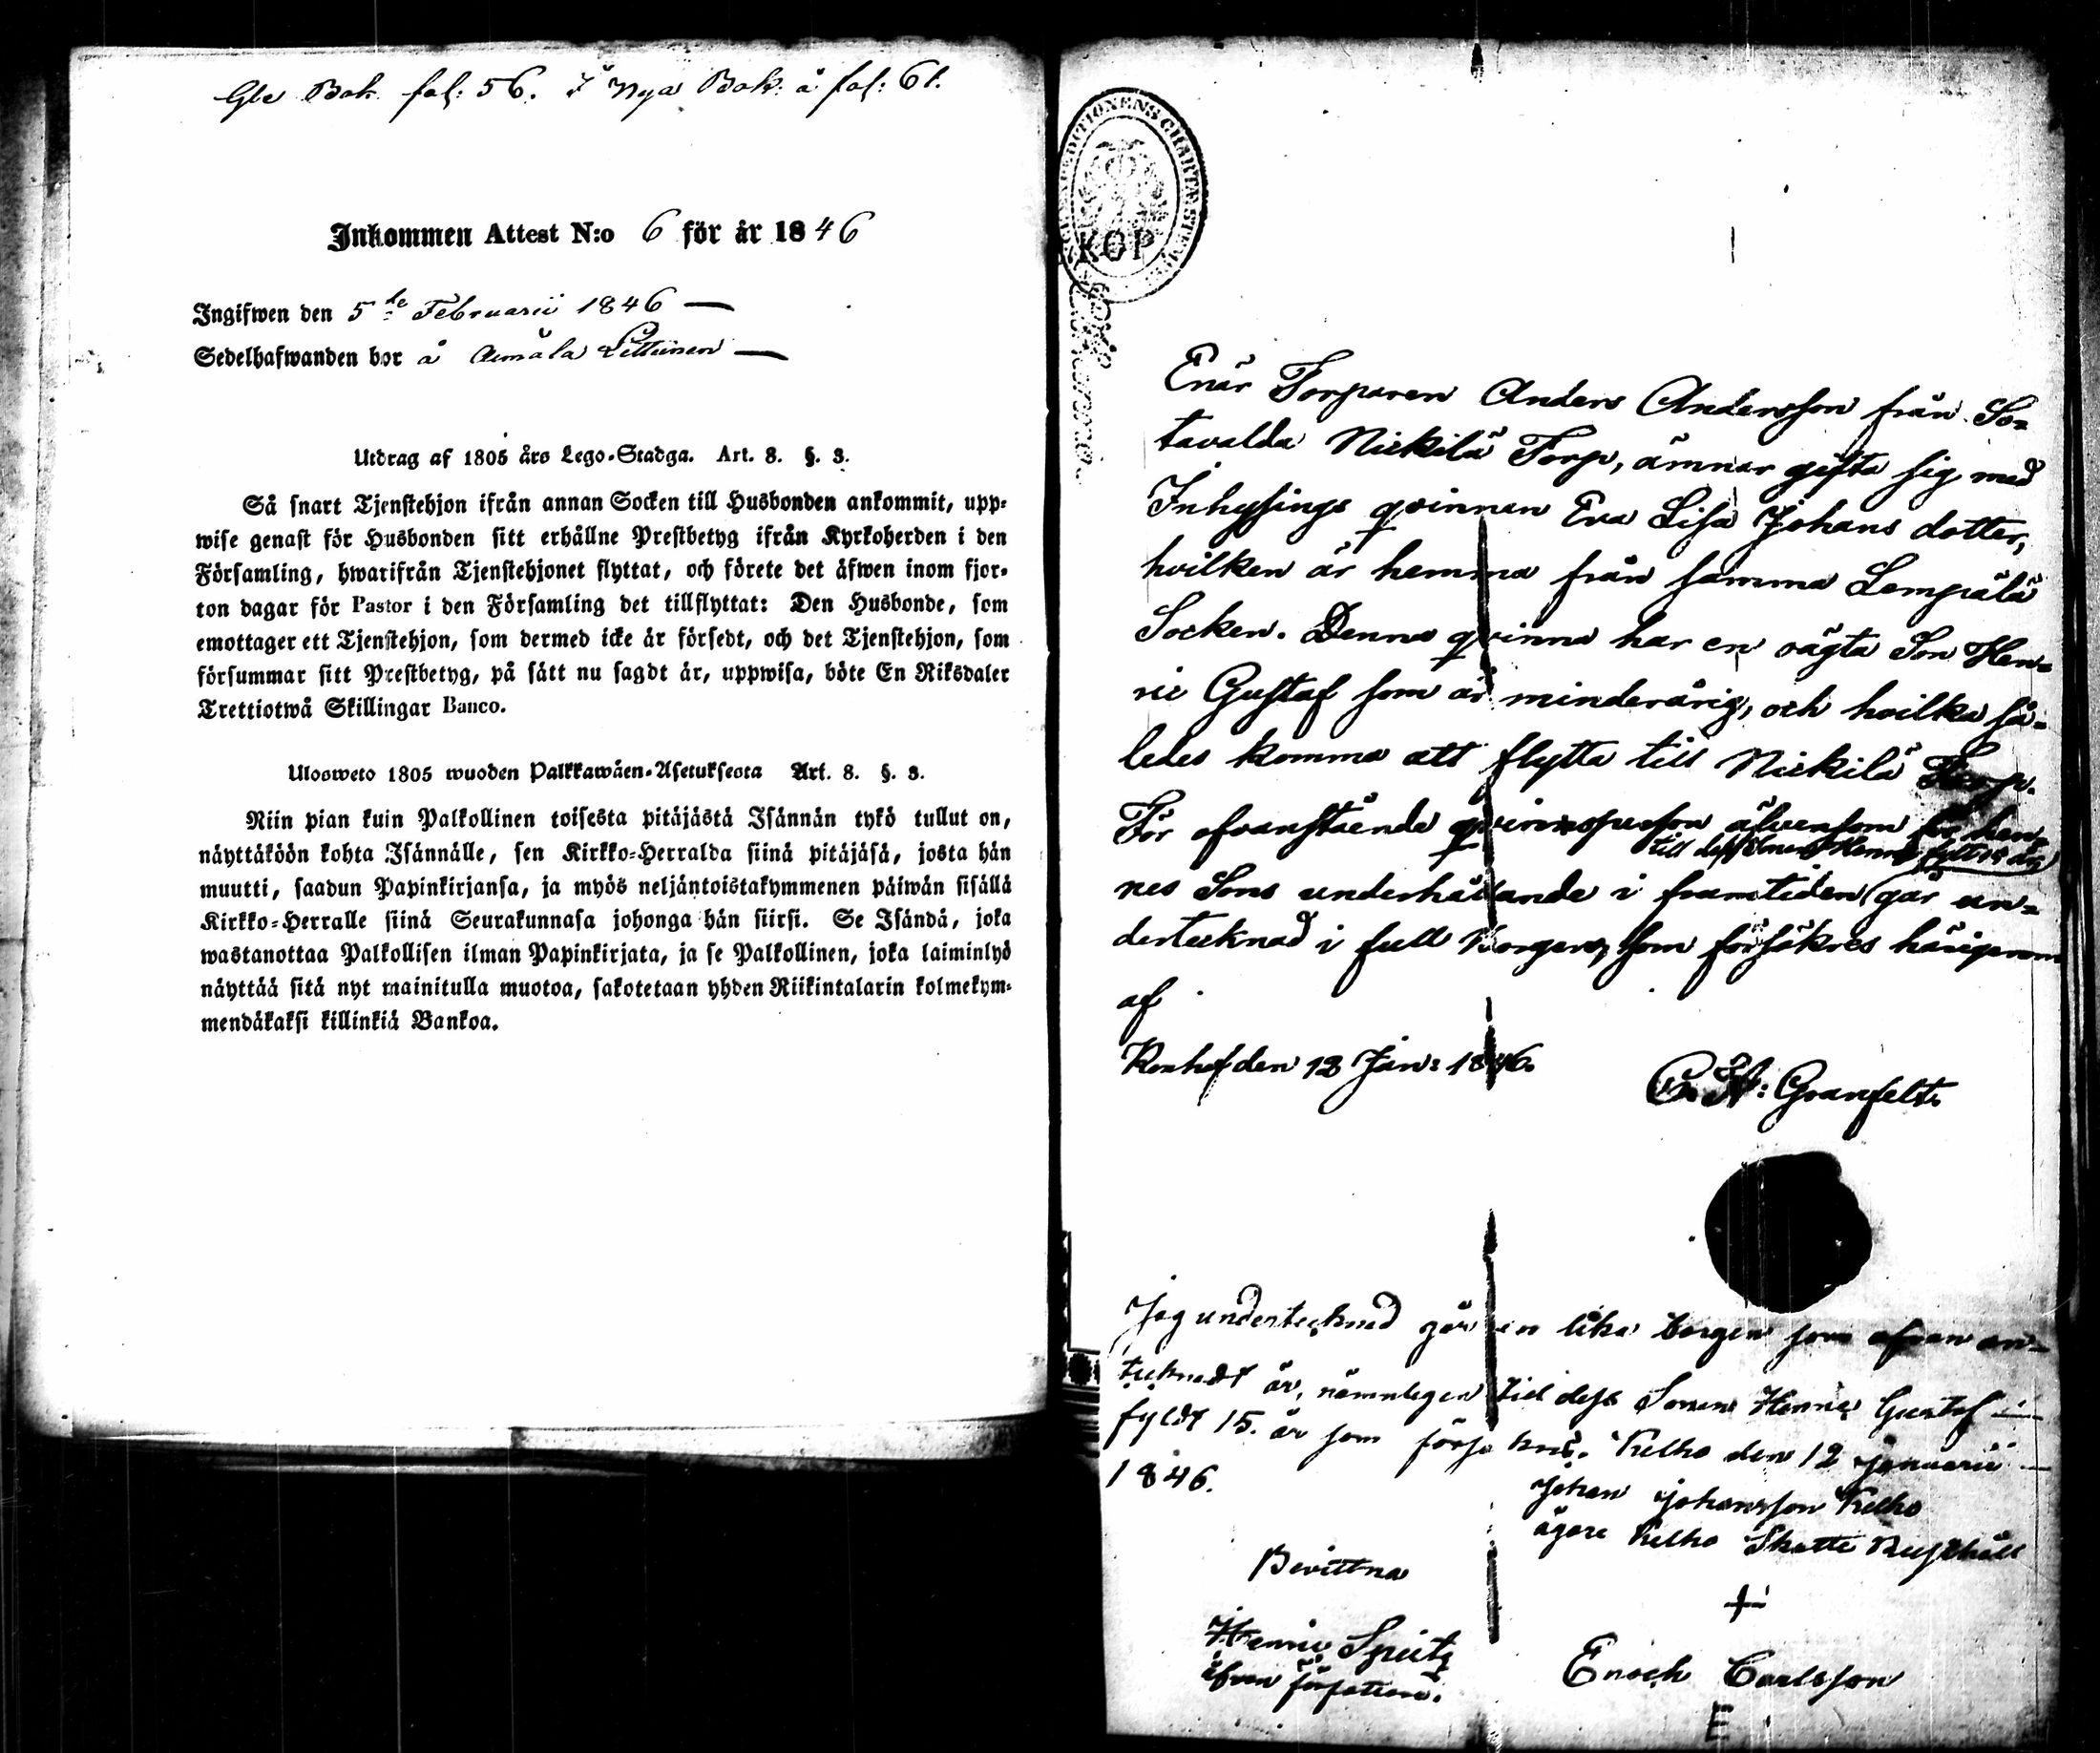 Gle Bok fol: 56. I Nya Bok: å fol: 61.
Inkommen Attest N:o 6 för år 1846
Ingifwen den 5te Februarii 1846 —
Sedelhafwanden bor å Aimåla —
Utdrag af 1805 års Lego-Stadga. Art. 8. §. 3.
Så snart Tjenstehjon ifrån annan Socken till Husbonden ankommit, upp-
wise genast för Husbonden sitt erhållne Prestbetyg ifrån Kyrkoherden i den
Församling, hwarifrån Tjenstehjonet flyttat, och förete det äfwen inom fjor-
ton dagar för Pastor i den Församling det tillflyttat: Den Husbonde, som
emottager ett Tjenstehjon, som dermed icke är försedt, och det Tjenstehjon, som
försummar sitt Prestbetyg, på sätt nu sagdt är, uppwisa, böte En Riksdaler
Trettiotwå Skillingar Banco.
Ulosweto 1805 wuoden Palkkawäen-Asetuksesta Art. 8. §. 3.
Niin pian kuin Palkollinen toisesta pitäjästä Isännän tykö tullut on,
näyttäköön kohta Isännälle, sen Kirkko-Herralda siinä pitäjäsä, josta hän
muutti, saadun Papinkirjansa, ja myös neljäntoistakymmenen päiwän sisällä
Kirkko-Herralle siinä Seurakunnasa johonga hän siirsi. Se Isändä, joka
wastanottaa Palkollisen ilman Papinkirjata, ja se Palkollinen, joka laiminlyö
näyttää sitä nyt mainitulla muotoa, sakotetaan yhden Riikintalarin kolmekym-
mendäkaksi killinkiä Bankoa.
EXPEDITIONENS CHARTÆ
KOP
Enär Torparen Anders Andersson från So-
tavalda Nickilä Torp, ämnar gifta sig med
Inhysings qvinnan Eva Lisa Johans dotter,
hvilken är hemma från samma Lempälä
Socken. Denna qvinna har en oägta Son Hen-
ric Gustaf som är minderårig, och hvilka så-
ledes komma att flytta till Nickilä Torp.
För ofvanstående qvinnsperson äfvensom för hen-
till dess Sonen Henric fyllt 15 år
nes Sons underhållande i framtiden går un-
dertecknad i full borgen, som försäkras härigenom
af
den 12 Jan: 1846.
C. A: Granfelt.
Jag undertecknad går en lika borgen som ofvan an-
tecknadt är, nämnlegen till dess Sonen Henric Gustaf
fyldt 15. år som försäkras. Kelho den 12 Januarii
1846.
Johan Johansson Kelho
ägare Kelho Skatte Rusthåll
Bevittna
Henric Speitz
Enoch Carlsson
E